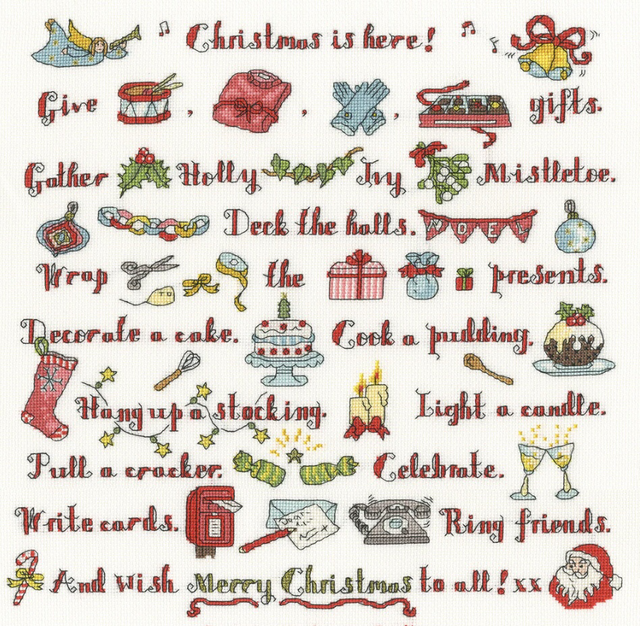 Christmas is here!
Give , , , gifts.
Gather Holly Ivy Mistletoe.
Deck the halls. NOEL
Wrap the presents.
TO
Decorate a cake. Cook a pudding.
Hang up a stocking. Light a candle.
Pull a cracker. Celebrate.
Write cards. Ring friends.
And wish Merry Christmas to all! xx